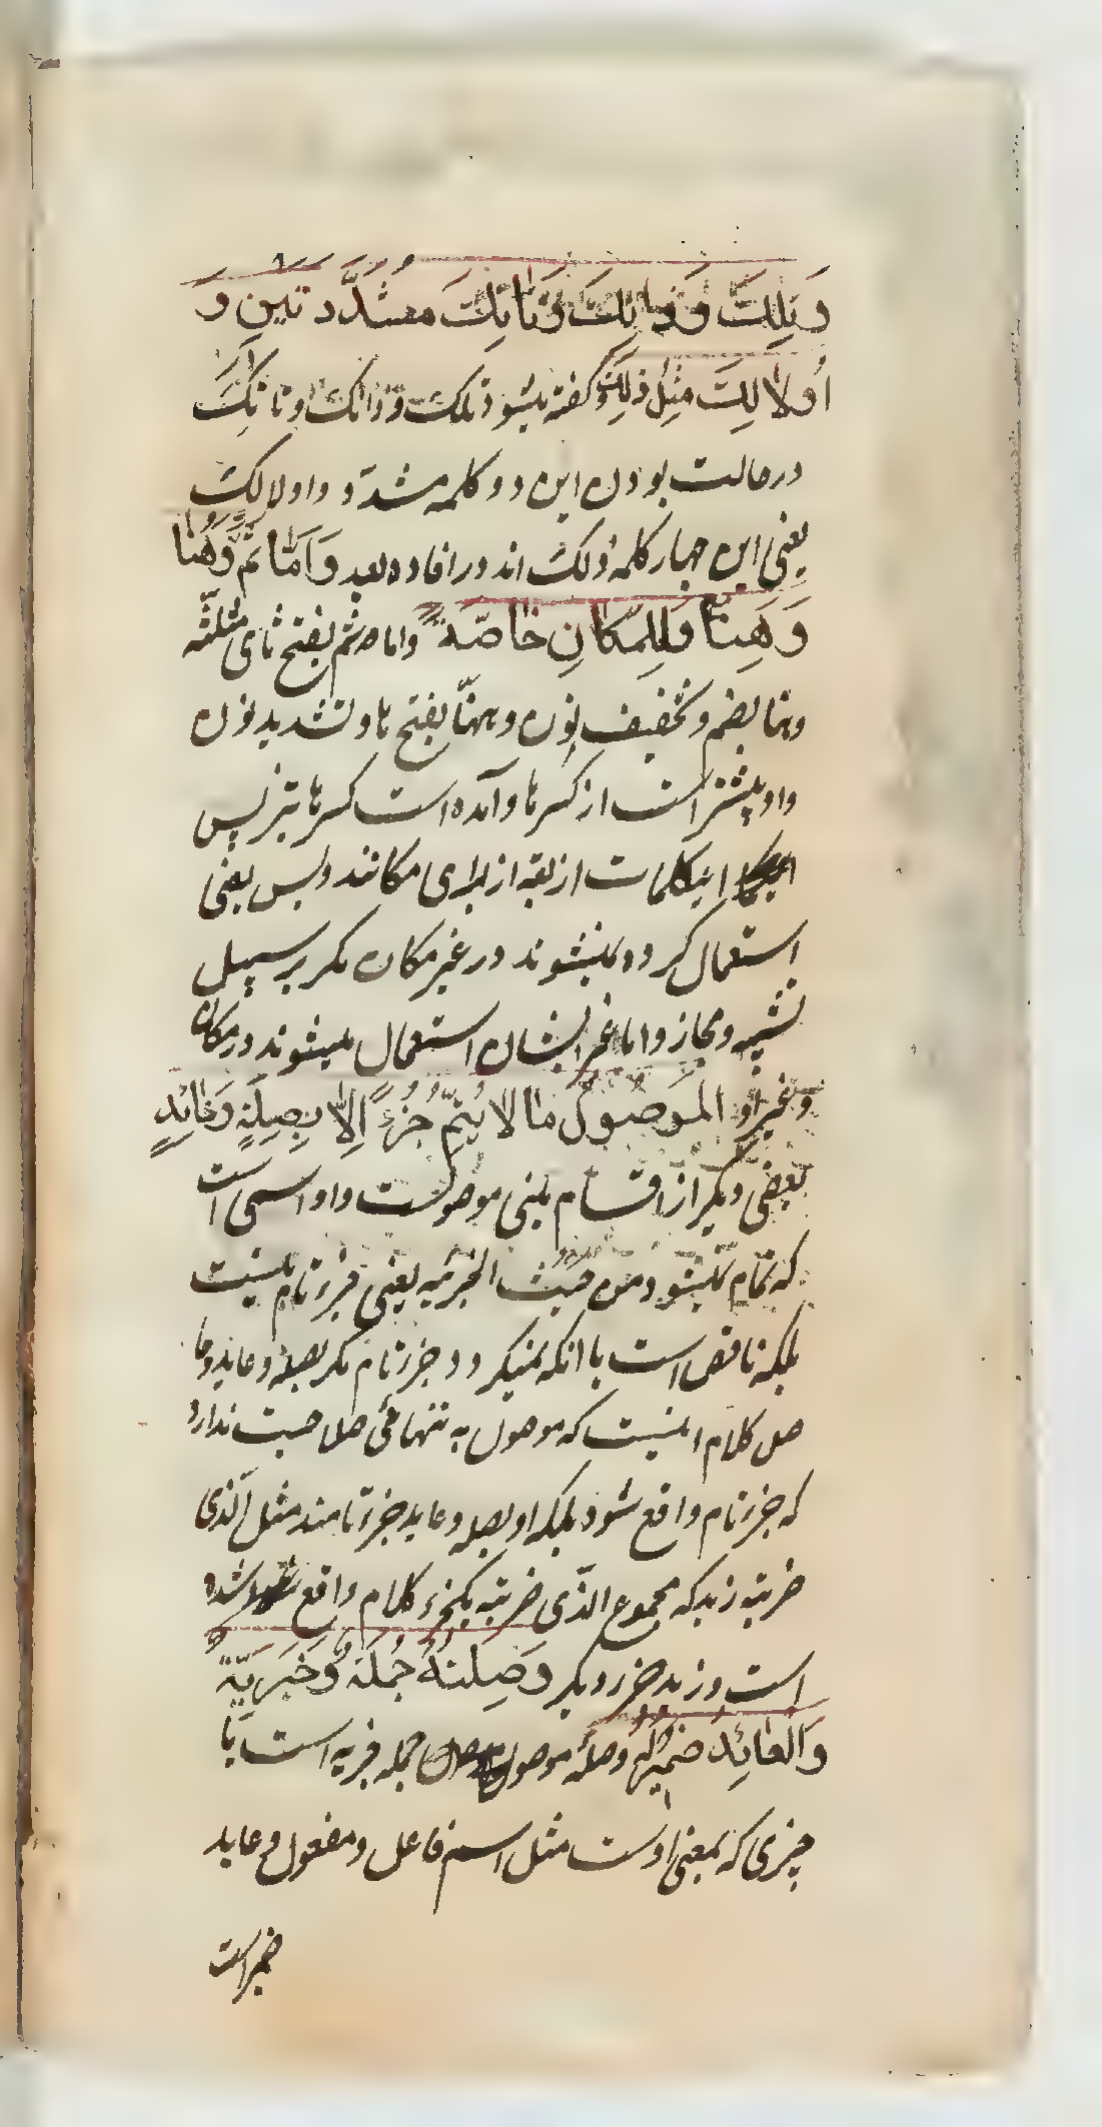 وَتِلكَ وَذانِّكَ وَتانِّكَ مشدَّدتينِ وَ
اُولالِكَ مثل ذلِكَ و گفته میشود تلک و ذانک و تانک
درحالت بودن این دو کلمه مشدّد و اولالک
یعنی این چهار کلمه ذلک اند در افاده بعید وَاَمّا ثَمَّ وَهُنا
وَهِنّا فَلِلمَکانِ خاصّةً و اما ثم بفتح ثای مثلثه
و هنا بضم و تخفیف نون و هنّا بفتح ها و تشدید نون
و او بیشتر است از کسر ها و آمده است کسر ها نیز پس
اینکلمات اربعه از برای مکانند و بس یعنی
استعمال کرده نمیشوند در غیر مکان مگر بر سبیل
تشبیه و مجاز و اما غیر ایشان استعمال میشوند در مکان
و غیر او المَوصُولُ مٰا لا یُتِمُّ جُزءً اِلّا بِصِلَةٍ وَعٰائِدٍ
بعضی دیگر از اقسام مبنی موصولست و او اسمی است
که تمام نمیشود من حیث الجزئیه یعنی جزء تام نیست
بلکه ناقص است یا انکه نمیگردد جزء تام مگر بصله و عاید و حا
صل کلام اینست که موصول به تنهائی صلاحیت ندارد
که جزء تام واقع شود بلکه او بصله و عاید جزء تامند مثل الّذی
ضربته زید که مجموع الذّی ضربته یکجزء کلام واقع شده
است و زید جزء دیگر وَصِلَتُهُ جُملَةٌ خَبَریَّةٌ
وَالعٰائِدُ ضَمیرٌ لَهُ و صلۀ موصول جمله خبریه است یا
چیزی که بمعنی اوست مثل اسم فاعل و مفعول و عاید
ضمیراست